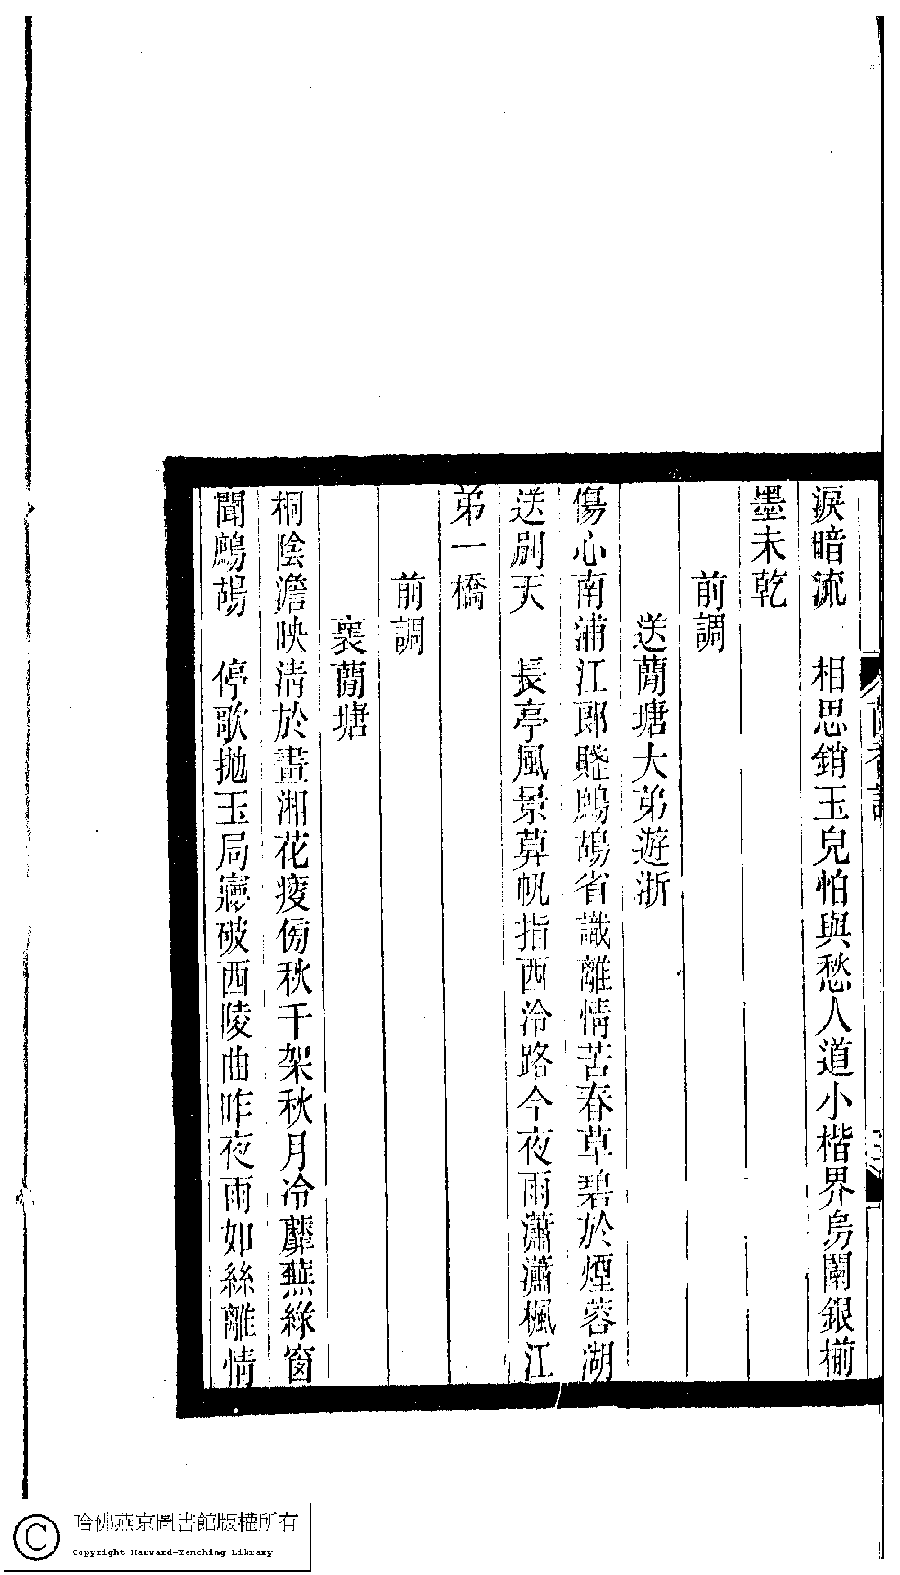 淚暗流　相思銷玉兒怕與愁人道小楷界烏闌銀㭘
墨未乾
前調
送蕳塘大弟遊浙
傷心南浦江郎賤鷓鴣省識離情苦春草碧於煙蓉湖
送別天　長亭風景算帆指西泠路今夜雨瀟瀟楓江
弟一橋
前調
褱蕳塘
桐陰澹映淸於畫湘花瘦傍秋千架秋月冷蘼蕪綠窗
聞鷓鴣　停歌拋玉局寱破西陵曲昨夜雨如絲離情
哈佛燕京圖書館版權所有
Copyright Harvard-Yenching Library